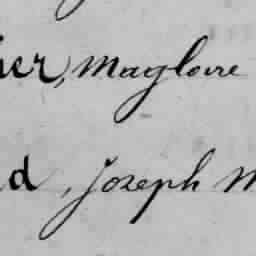 her, Magloire
d, Joseph M